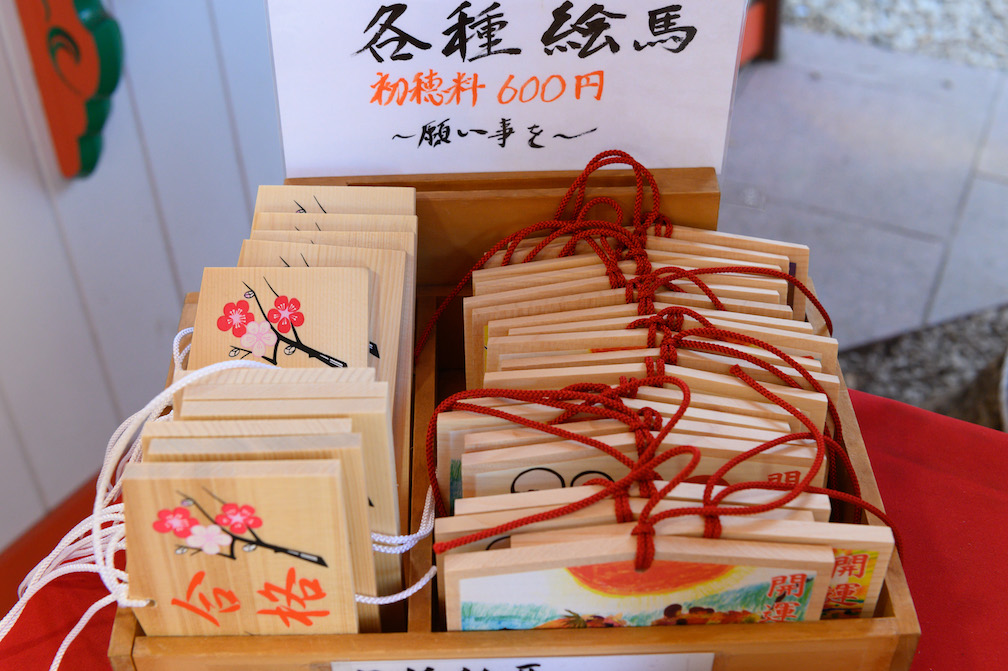 各種絵馬
初穂料 600円
~願い事を~
合格
開運
開運
開運